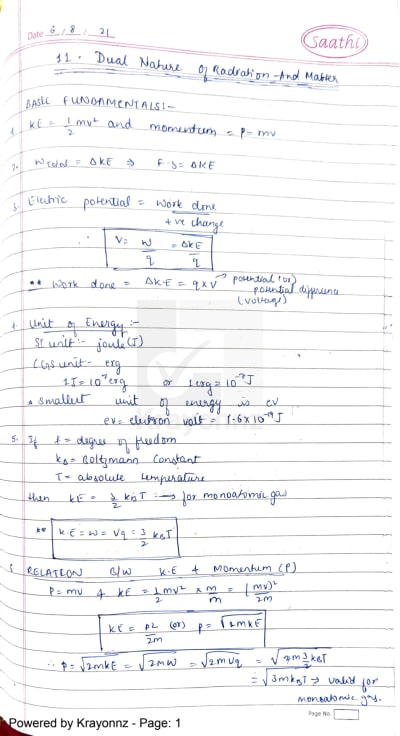 Date 6 / 8 / 21
Saathi
11. Dual Nature of Radiation And Matter
BASIC FUNDAMENTALS:-
1. KE = 1/2 mv² and momentum = P = mv
2. W total = ΔKE ⇒ F.S = ΔKE
3. Electric potential = Work done / +ve charge
V = W/q = ΔKE/q
** Work done = ΔK.E = q x V → potential (or) potential difference (voltage)
4. Unit of Energy :-
SI unit :- joule (J)
CGS unit - erg
1J = 10⁷ erg or 1 erg = 10⁻⁷ J
* smallest unit of energy is eV
eV = electron volt = 1.6 x 10⁻¹⁹ J
5. If f = degree of freedom
kB = Boltzmann Constant
T = absolute temperature
then KE = 3/2 kBT → for monoatomic gas
** K.E = W = Vq = 3/2 kBT
6. RELATION B/W K.E & Momentum (P)
P = mv & KE = 1/2 mv² x m/m = (mv)²/2m
KE = P²/2m (or) P = √2mKE
∴ P = √2mKE = √2mW = √2mVq = √2m 3/2 kBT
= √3mkBT → valid for
monoatomic gas.
Page No.
Powered by Krayonnz - Page: 1
Krayonnz